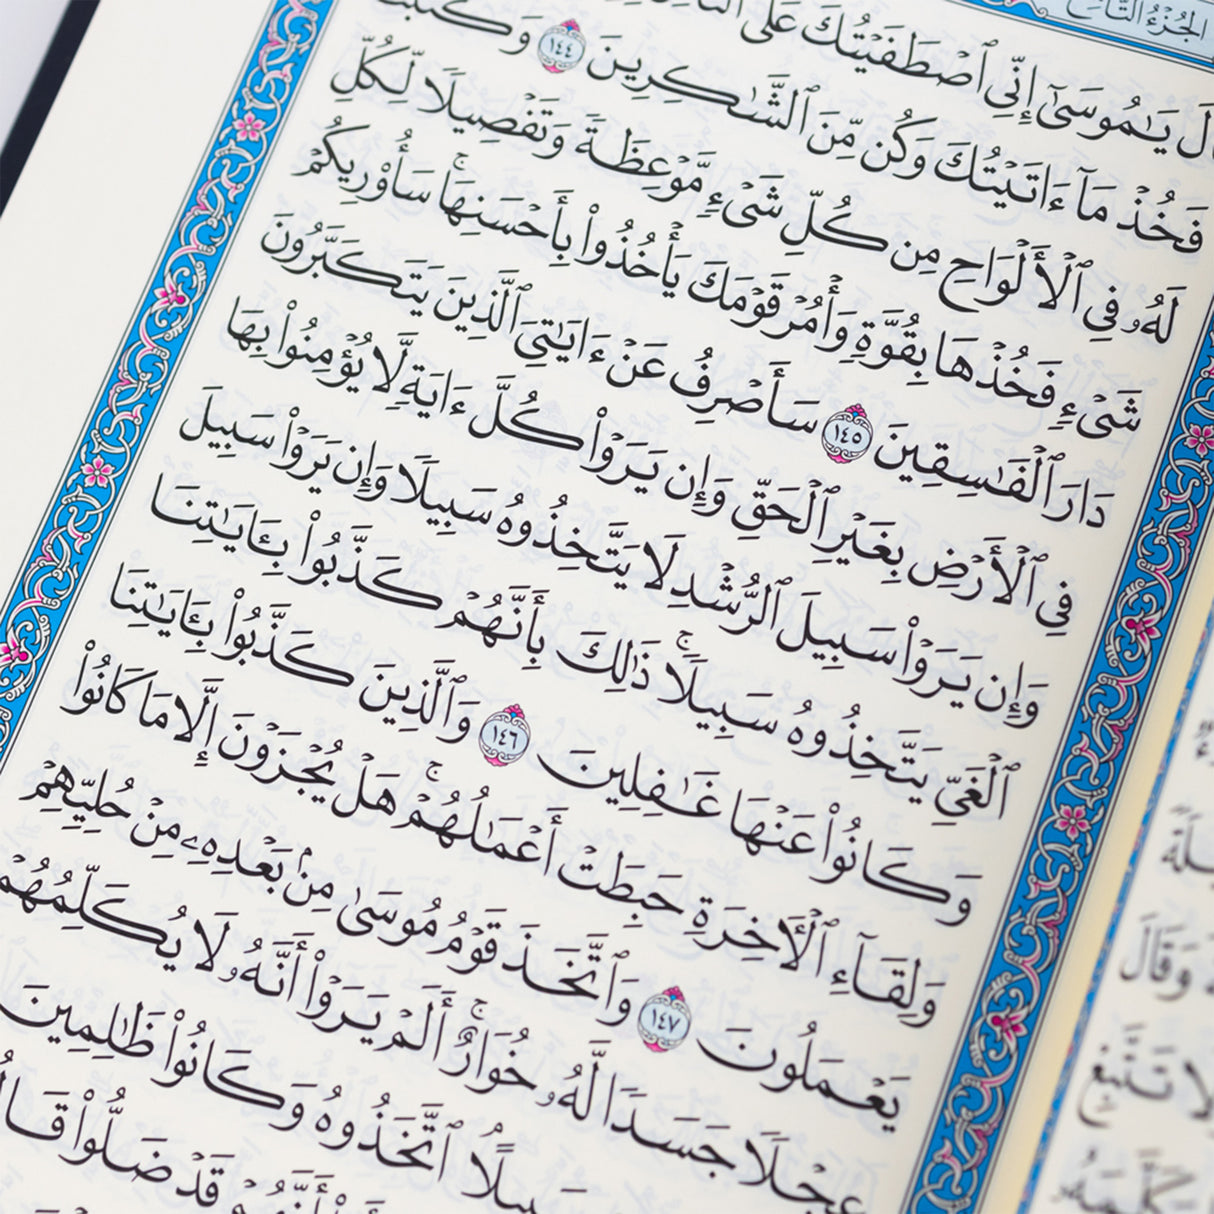 الجزء التاسع
قَالَ يَـٰمُوسَىٰٓ إِنِّى ٱصْطَفَيْتُكَ عَلَى
فَخُذْ مَآ ءَاتَيْتُكَ وَكُن مِّنَ ٱلشَّـٰكِرِينَ ١٤٤ وَكَتَبْنَا
لَهُۥ فِى ٱلْأَلْوَاحِ مِن كُلِّ شَىْءٍ مَّوْعِظَةً وَتَفْصِيلًا لِّكُلِّ
شَىْءٍ فَخُذْهَا بِقُوَّةٍ وَأْمُرْ قَوْمَكَ يَأْخُذُوا۟ بِأَحْسَنِهَا ۚ سَأُو۟رِيكُمْ
دَارَ ٱلْفَـٰسِقِينَ ١٤٥ سَأَصْرِفُ عَنْ ءَايَـٰتِىَ ٱلَّذِينَ يَتَكَبَّرُونَ
فِى ٱلْأَرْضِ بِغَيْرِ ٱلْحَقِّ وَإِن يَرَوْا۟ كُلَّ ءَايَةٍ لَّا يُؤْمِنُوا۟ بِهَا
وَإِن يَرَوْا۟ سَبِيلَ ٱلرُّشْدِ لَا يَتَّخِذُوهُ سَبِيلًا وَإِن يَرَوْا۟ سَبِيلَ
ٱلْغَىِّ يَتَّخِذُوهُ سَبِيلًا ۚ ذَٰلِكَ بِأَنَّهُمْ كَذَّبُوا۟ بِـَٔايَـٰتِنَا
وَكَانُوا۟ عَنْهَا غَـٰفِلِينَ ١٤٦ وَٱلَّذِينَ كَذَّبُوا۟ بِـَٔايَـٰتِنَا
وَلِقَآءِ ٱلْـَٔاخِرَةِ حَبِطَتْ أَعْمَـٰلُهُمْ ۚ هَلْ يُجْزَوْنَ إِلَّا مَا كَانُوا۟
يَعْمَلُونَ ١٤٧ وَٱتَّخَذَ قَوْمُ مُوسَىٰ مِنۢ بَعْدِهِۦ مِنْ حُلِيِّهِمْ
عِجْلًا جَسَدًا لَّهُۥ خُوَارٌ ۚ أَلَمْ يَرَوْا۟ أَنَّهُۥ لَا يُكَلِّمُهُمْ
سَبِيلًا ٱتَّخَذُوهُ وَكَانُوا۟ ظَـٰلِمِينَ
قَدْ ضَلُّوا۟ قَالُوا۟
وَقَالَ